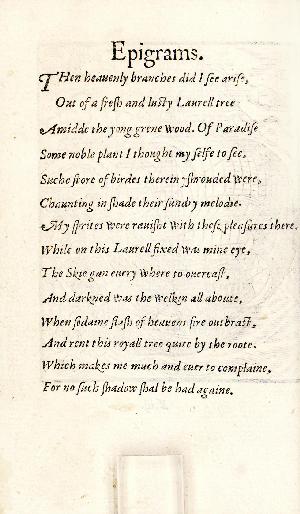 Epigrams.
THen heauenly branches did I see arise,
Out of a fresh and lusty Laurell tree
Amidde the yong grene wood. Of Paradise
Some noble plant I thought my selfe to see,
Suche store of birdes therein yshrouded were,
Chaunting in shade their sundry melodie.
My sprites were rauisht with these pleasures there.
While on this Laurell fixed was mine eye,
The Skie gan euery where to ouercast,
And darkned was the welkin all aboute,
When sodaine flash of heauens fire outbrast,
And rent this royall tree quite by the roote.
Which makes me much and euer to complaine,
For no such shadow shal be had againe.